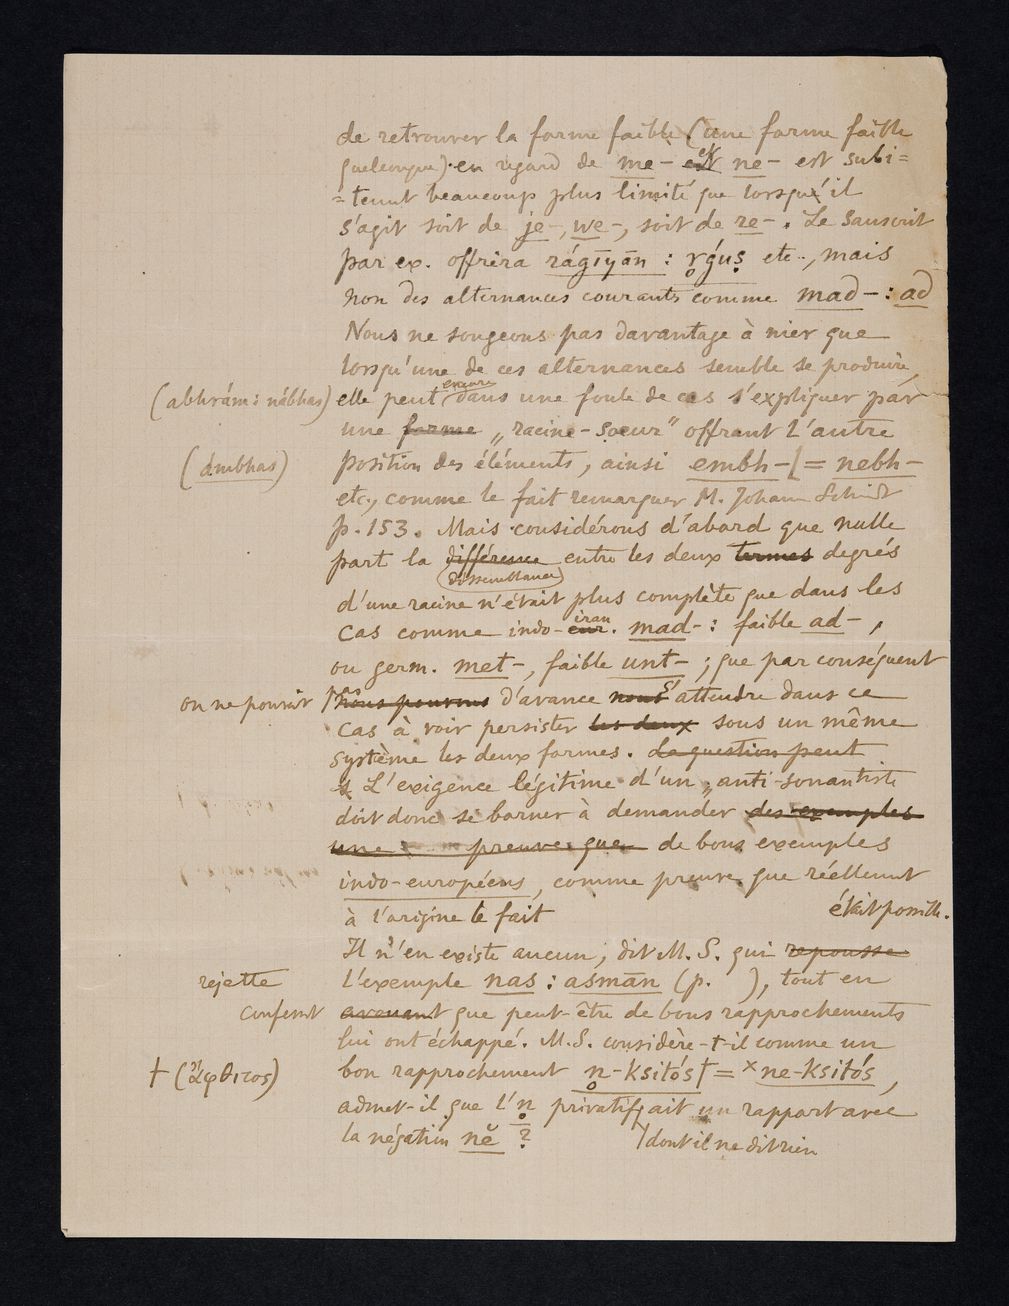 de retrouver la forme faible (une forme faible
quelconque) en regard de me- et ne- est subi=
=tement beaucoup plus limité que lorsqu'il
s'agit soit de je-, we-, soit de re-. Le Sanscrit
par ex. offrira rágīyān : r̥ǵús etc., mais
non des alternances courants comme mad- : ad
Nous ne songeons pas davantage à nier que
lorsqu'une de ces alternances semble se produire,
(abhrám : nábhas) elle peut encore dans une foule de cas s'expliquer par
une forme „racine-soeur" offrant l'autre
(ámbhas) position des éléments, ainsi embh- = nebh-
etc., comme le fait remarquer M. Johann Schmidt
p. 153. Mais considérons d'abord que nulle
part la différence entre les deux termes degrés
(dissemblance)
d'une racine n'était plus complète que dans les
cas comme indo-eur. iran mad- : faible ad-,
ou germ. met-, faible unt- ; que par conséquent
on ne pouvait pas nous pouvons d'avance nous s'attendre dans ce
cas à voir persister les deux sous un même
système les deux formes. La question peut
L'exigence légitime d'un „anti-sonantiste
doit donc se borner à demander des exemples
une preuve que de bons exemples
indo-européens, comme preuve que réellement
à l'origine le fait était possible.
Il n'en existe aucun, dit M. S. qui repousse
rejette l'exemple nas : asmān (p. ), tout en
confessant avouant que peut-être de bons rapprochements
lui ont échappé. M. S. considère-t-il comme un
† (ἄφθιτος) bon rapprochement n̥-ksitós† = ˣne-ksitós,
admet-il que l'n̥ privatif ait un rapport avec
la négation nĕ ? dont il ne dit rien